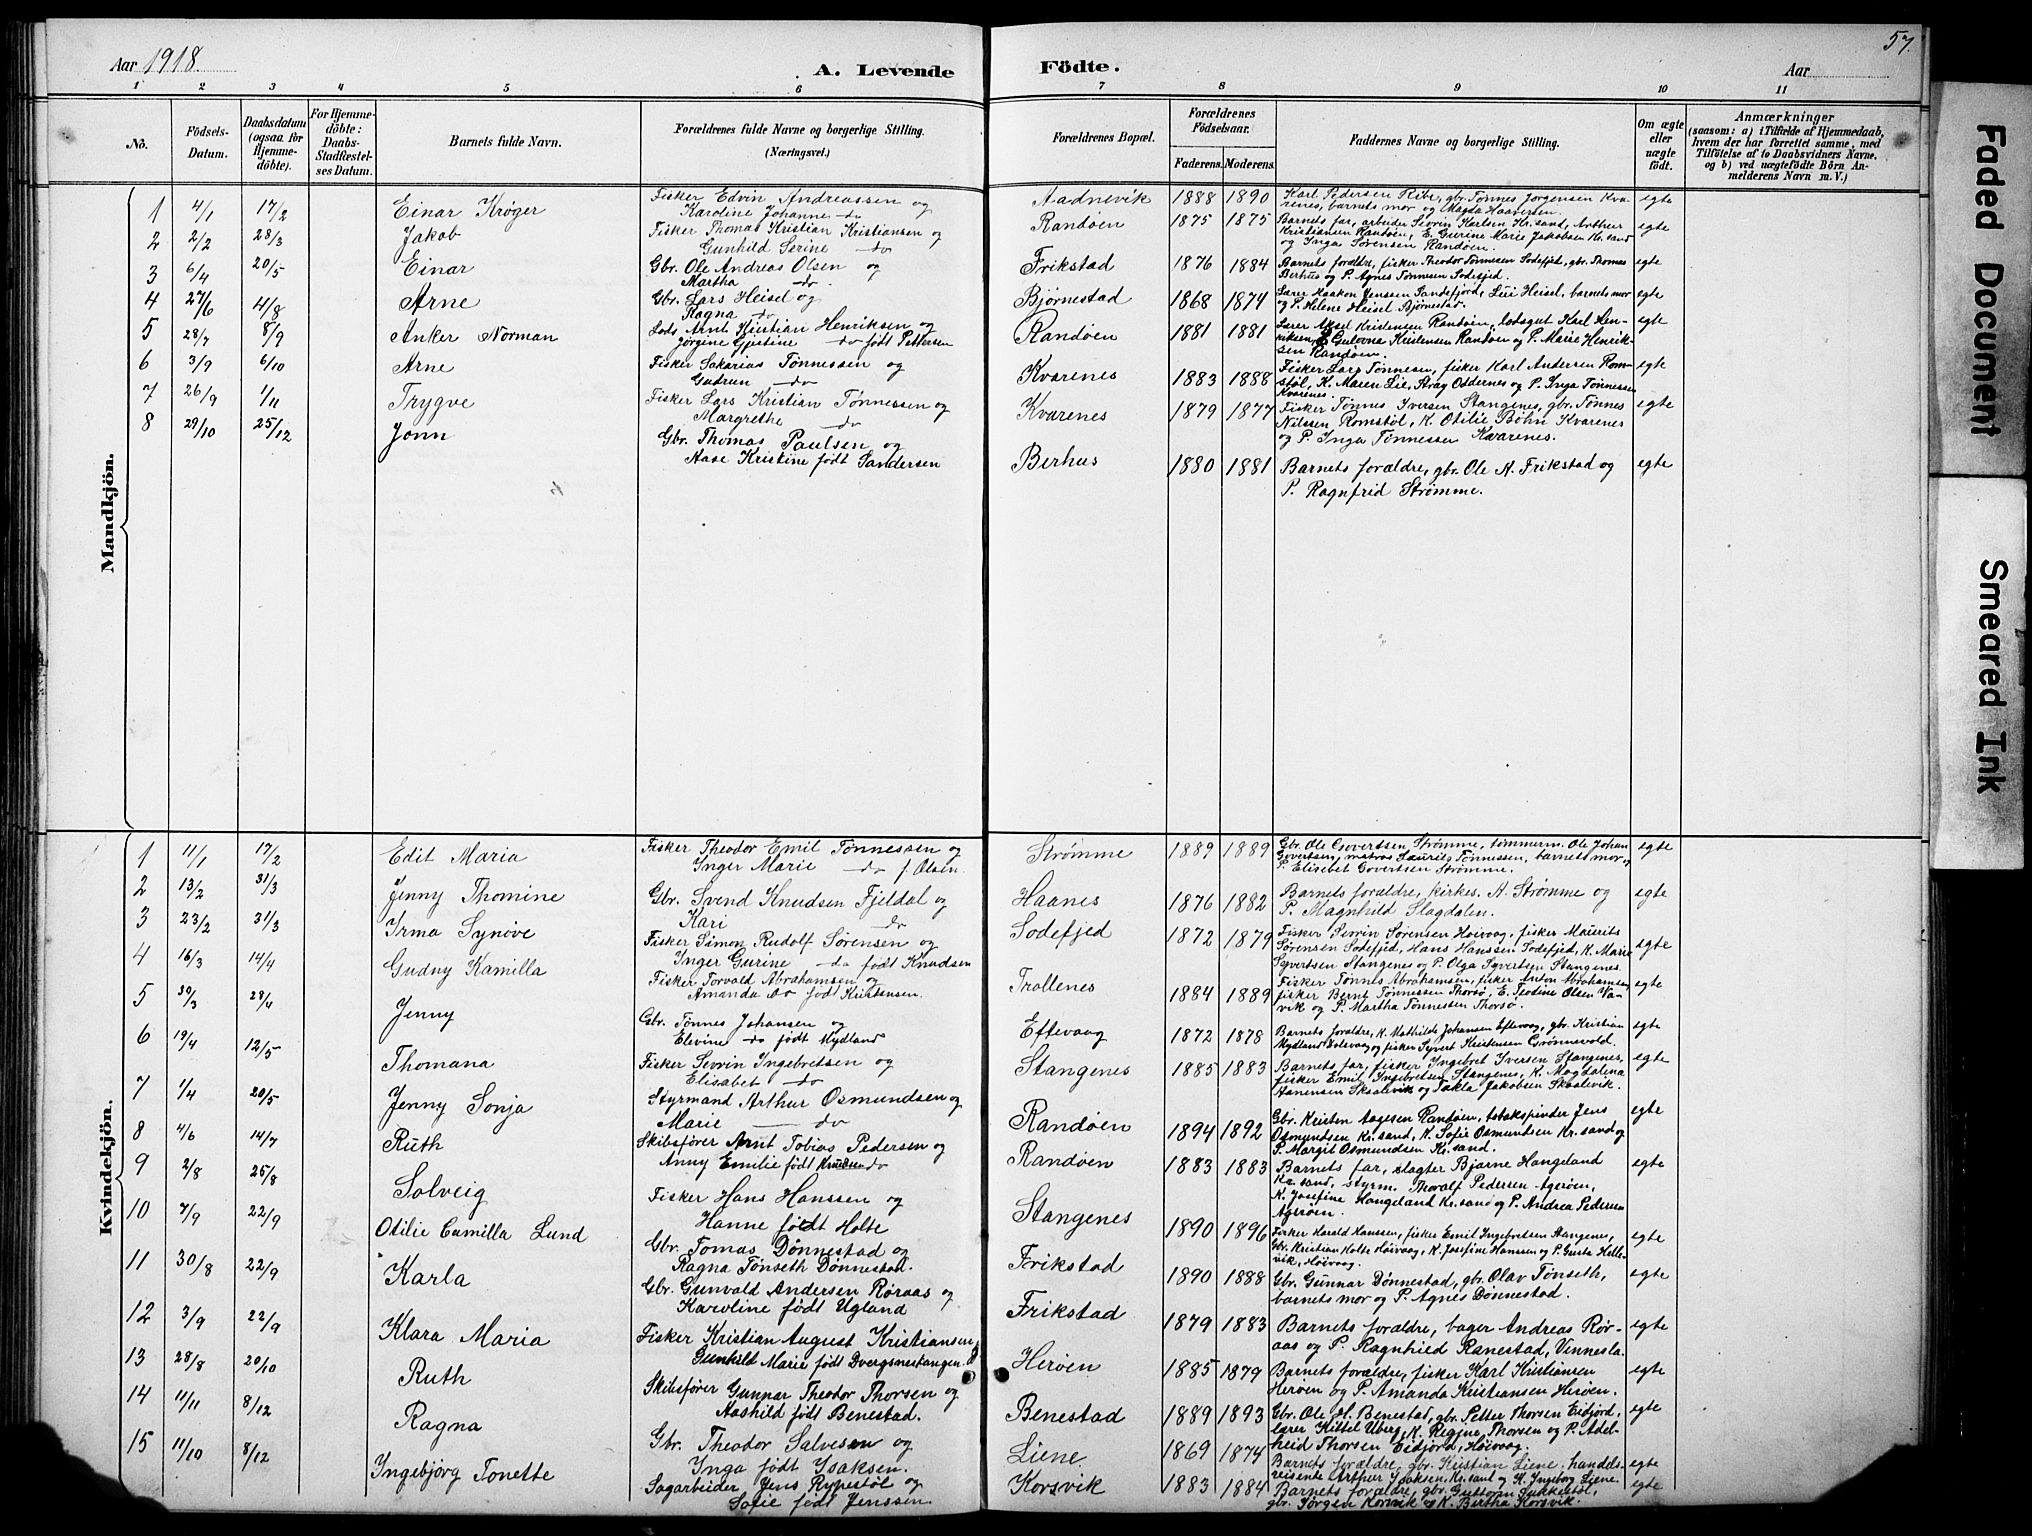 Aar 1918.
A. Levende
Födte.
57.
Aar
1 2 3 4 5 6 7 8 9 10 11
No.
Födsels-Datum.
Daabsdatum (ogsaa for Hjemmedöbte).
For Hjemmedöbte: Daabs-Stadfæstelses Datum.
Barnets fulde Navn.
Forældrenes fulde Navne og borgerlige Stilling. (Næringsvei.)
Forældrenes Bopæl.
Forældrenes Födselsaar.
Faderens. Moderens.
Faddernes Navne og borgerlige Stilling.
Om ægte eller uægte födt.
Anmærkninger
(saasom: a) i Tilfælde af Hjemmedaab, hvem der har forrettet samme, med Tilföielse af to Daabsvidners Navne, og b) ved uægtefödte Börn Anmelderens Navn m. V.)
Mandkjön.
1 4/1 17/2 Einar Krøger Fisker Edvin Andreassen og Karoline Johanne do Aadnevik 1888 1890 Karl Pedersen Ribe, gbr. Tønnes Jørgensen Kvarenes, barnets mor og Magda Haaversen. egte
2 2/2 28/3 Jakob Fisker Thomas Kristian Kristiansen og Gunhild Serine do Randøen 1875 1875 Barnets far, arbeider Sevrin Karlsen Kr.sand, Arthur Kristiansen Randøen, E. Gurine Marie Jakobsen Kr.sand og Inga Sørensen Randøen. egte
3 6/4 20/5 Einar Gbr. Ole Andreas Olsen og Martha do Frikstad 1876 1884 Barnets forældre, fisker Theodor Tønnesen Sodefjed, gbr. Thomas Berhus og P. Agnes Tønnesen Sodefjed. egte
4 27/6 4/8 Arne Gbr. Lars Heisel og Ragna do Bjørnestad 1868 1874 Lærer Haakon Jenssen Sandefjord, Lùi Heisel, barnets mor og P. Helene Heisel Bjørnestad. egte
5 28/7 8/9 Anker Norman Lods Arnt Kristian Henriksen og Jørgine Gjertine do født Pettersen Randøen 1881 1881 Lærer Aksel Kristensen Randøen, lodsgut Karl Henriksen, E Gulovna Kristensen Randøen og P. Marie Henriksen Randøen. egte
6 3/9 6/10 Arne Fisker Sakarias Tønnessen og Gudrun do Kvarenes 1883 1888 Fisker Lars Tønnesen, fisker Karl Andersen Romstøl, K. Maren Lie, Strag Oddernes og P. Inga Tønnessen Kvarenes. egte
7 26/9 1/11 Trygve Fisker Lars Kristian Tønnessen og Margrethe do Kvarenes 1879 1877 Fisker Tønnes Iversen Stangenes, gbr. Tønnes Nilssen Romstøl, K. Otilie Bøhn Kvarenes og P. Inga Tønnessen Kvarenes. egte
8 29/10 25/12 Jonn Gbr. Thomas Paulsen og Aase Kristine født Sandersen Berhus 1880 1881 Barnets forældre, gbr. Ole A. Frikstad og P. Ragnfrid Strømme. egte
Kvindekjön.
1 11/1 17/2 Edit Maria Fisker Theodor Emil Tønnessen og Inger Marie do f. Olsen. Strømme 1889 1889 Gbr. Ole Govertsen Strømme, tømmerm. Ole Johan Govertsen, matros Laurits Tønnessen, barnets mor og P. Elisebet Govertsen Strømme. egte
2 13/2 31/3 Jenny Thomine Gbr. Svend Knudsen Fjeldal og Kari do Haanes 1876 1882 Barnets forældre, kirkes. A. Strømme og P. Magnhild Slagdalen. egte
3 23/2 31/3 Irma Synøve Fisker Simon Rudolf Sørensen og Inger Gurine do født Knudsen Sodefjed 1872 1879 Fisker Sevrin Sørensen Høivaag, fisker Maurits Sørensen Sodefjed, Hans Hanssen Sodefjed, K. Marie Syvertsen Stangenes og P. Olga Syvertsen Stangenes. egte
4 16/3 14/4 Gudny Kamilla Fisker Torvald Abrahamsen og Amanda do født Kristensen. Trollenes 1884 1889 Fisker Tønnes Abrahamsen, fisker Anton Abrahamsen, fisker Bernt Tønnessen Thorsø, E. Teodine Olsen Vavik og P. Martha Tønnessen Thorsø. egte
5 30/3 28/4 Jenny Gbr. Tønnes Johansen og Elevine do født Mydland Eftevaag 1872 1878 Barnets forældre, K. Mathilde Johansen Eftevaag, gbr. Kristian Mydland og fisker Syvert Kristensen Grønnevold. egte
6 19/4 12/5 Thomana Fisker Sevrin Ingebretsen og Elisabet do Stangenes 1885 1883 Barnets far, fisker Ingebret Iversen Stangenes, fisker Emil Ingebretsen Stangenes, K. Magdalena Aanensen Skaalevik og Takla Jakobsen Skaalevik. egte
7 1/4 20/5 Jenny Sonja Styrmand Arthur Osmundsen og Marie do Randøen 1894 1892 Gbr. Kristen Aagesen Randøen, tobakspinder Jens Osmundsen Kr.sand, K. Sofie Osmundsen Kr.sand og P. Margit Osmundsen Kr.sand. egte
8 4/6 14/7 Ruth Skibsfører Arnt Tobias Pedersen og Anny Emilie født Knudsen do Randøen 1883 1883 Barnets far, slagter Bjarne Haugeland Kr.sand, styrm. Thoralf Pedersen Agerøen, K. Josefine Haugeland Kr.sand og P. Andrea Pedersen Agerøen. egte
9 2/8 25/8 Solveig Fisker Hans Hanssen og Hanne født Holte Stangenes 1890 1896 Fisker Harald Hanssen, fisker Emil Ingebretsen Stangenes, Gbr. Kristian Holte Høivaag, K. Josefine Hanssen og P. Gusta Hellevik, Høivaag. egte
10 7/9 22/9 Otilie Camilla Lund Gbr. Tomas Dønnestad og Ragna Tønseth Dønnestad. Frikstad 1890 1888 Gbr. Gunnar Dønnestad, gbr. Olav Tønseth, barnets mor og P. Agnes Dønnestad. egte
11 30/8 22/9 Karla Gbr. Gunvald Andersen Røraas og Karoline født Ugland Frikstad 1879 1883 Barnets forældre, bager Andreas Røraas og P. Ragnhild Ranestad, Vennesla. egte
12 3/9 22/9 Klara Maria Fisker Kristian August Kristiansen og Gunhild Marie født Dvergsnestangen Herøen 1885 1879 Barnets forældre, fisker Karl Kristiansen Herøen og P. Amanda Kristiansen Herøen. egte
13 28/8 20/10 Ruth Skibsfører Gunnar Theodor Thorsen og Aashild født Benestad. Benestad 1889 1893 Gbr. Ole H. Benestad, gbr. Petter Thorsen Eidjord, lærer Kittel Uberg, K. Regine Thorsen og P. Adelheid Thorsen Eidjord, Høivaag. egte
14 11/11 8/12 Ragna Gbr. Theodor Salvesen og Inga født Ysaksen. Liene 1869 1874 Barnets forældre, gbr. Kristian Liene, handelsreisente Arthur Ysaksen, Kr.sand og K. Ingeborg Liene. egte
15 11/10 8/12 Ingebjørg Tonette Sagarbeider Jens Rypestøl og Sofie født Jenssen. Korsvik 1883 1884 Barnets forældre, gbr. Guttorm Sukkestøl, gbr. Jørgen Korsvik og K. Bertha Korsvik. egte
Faded Document
Smeared Ink